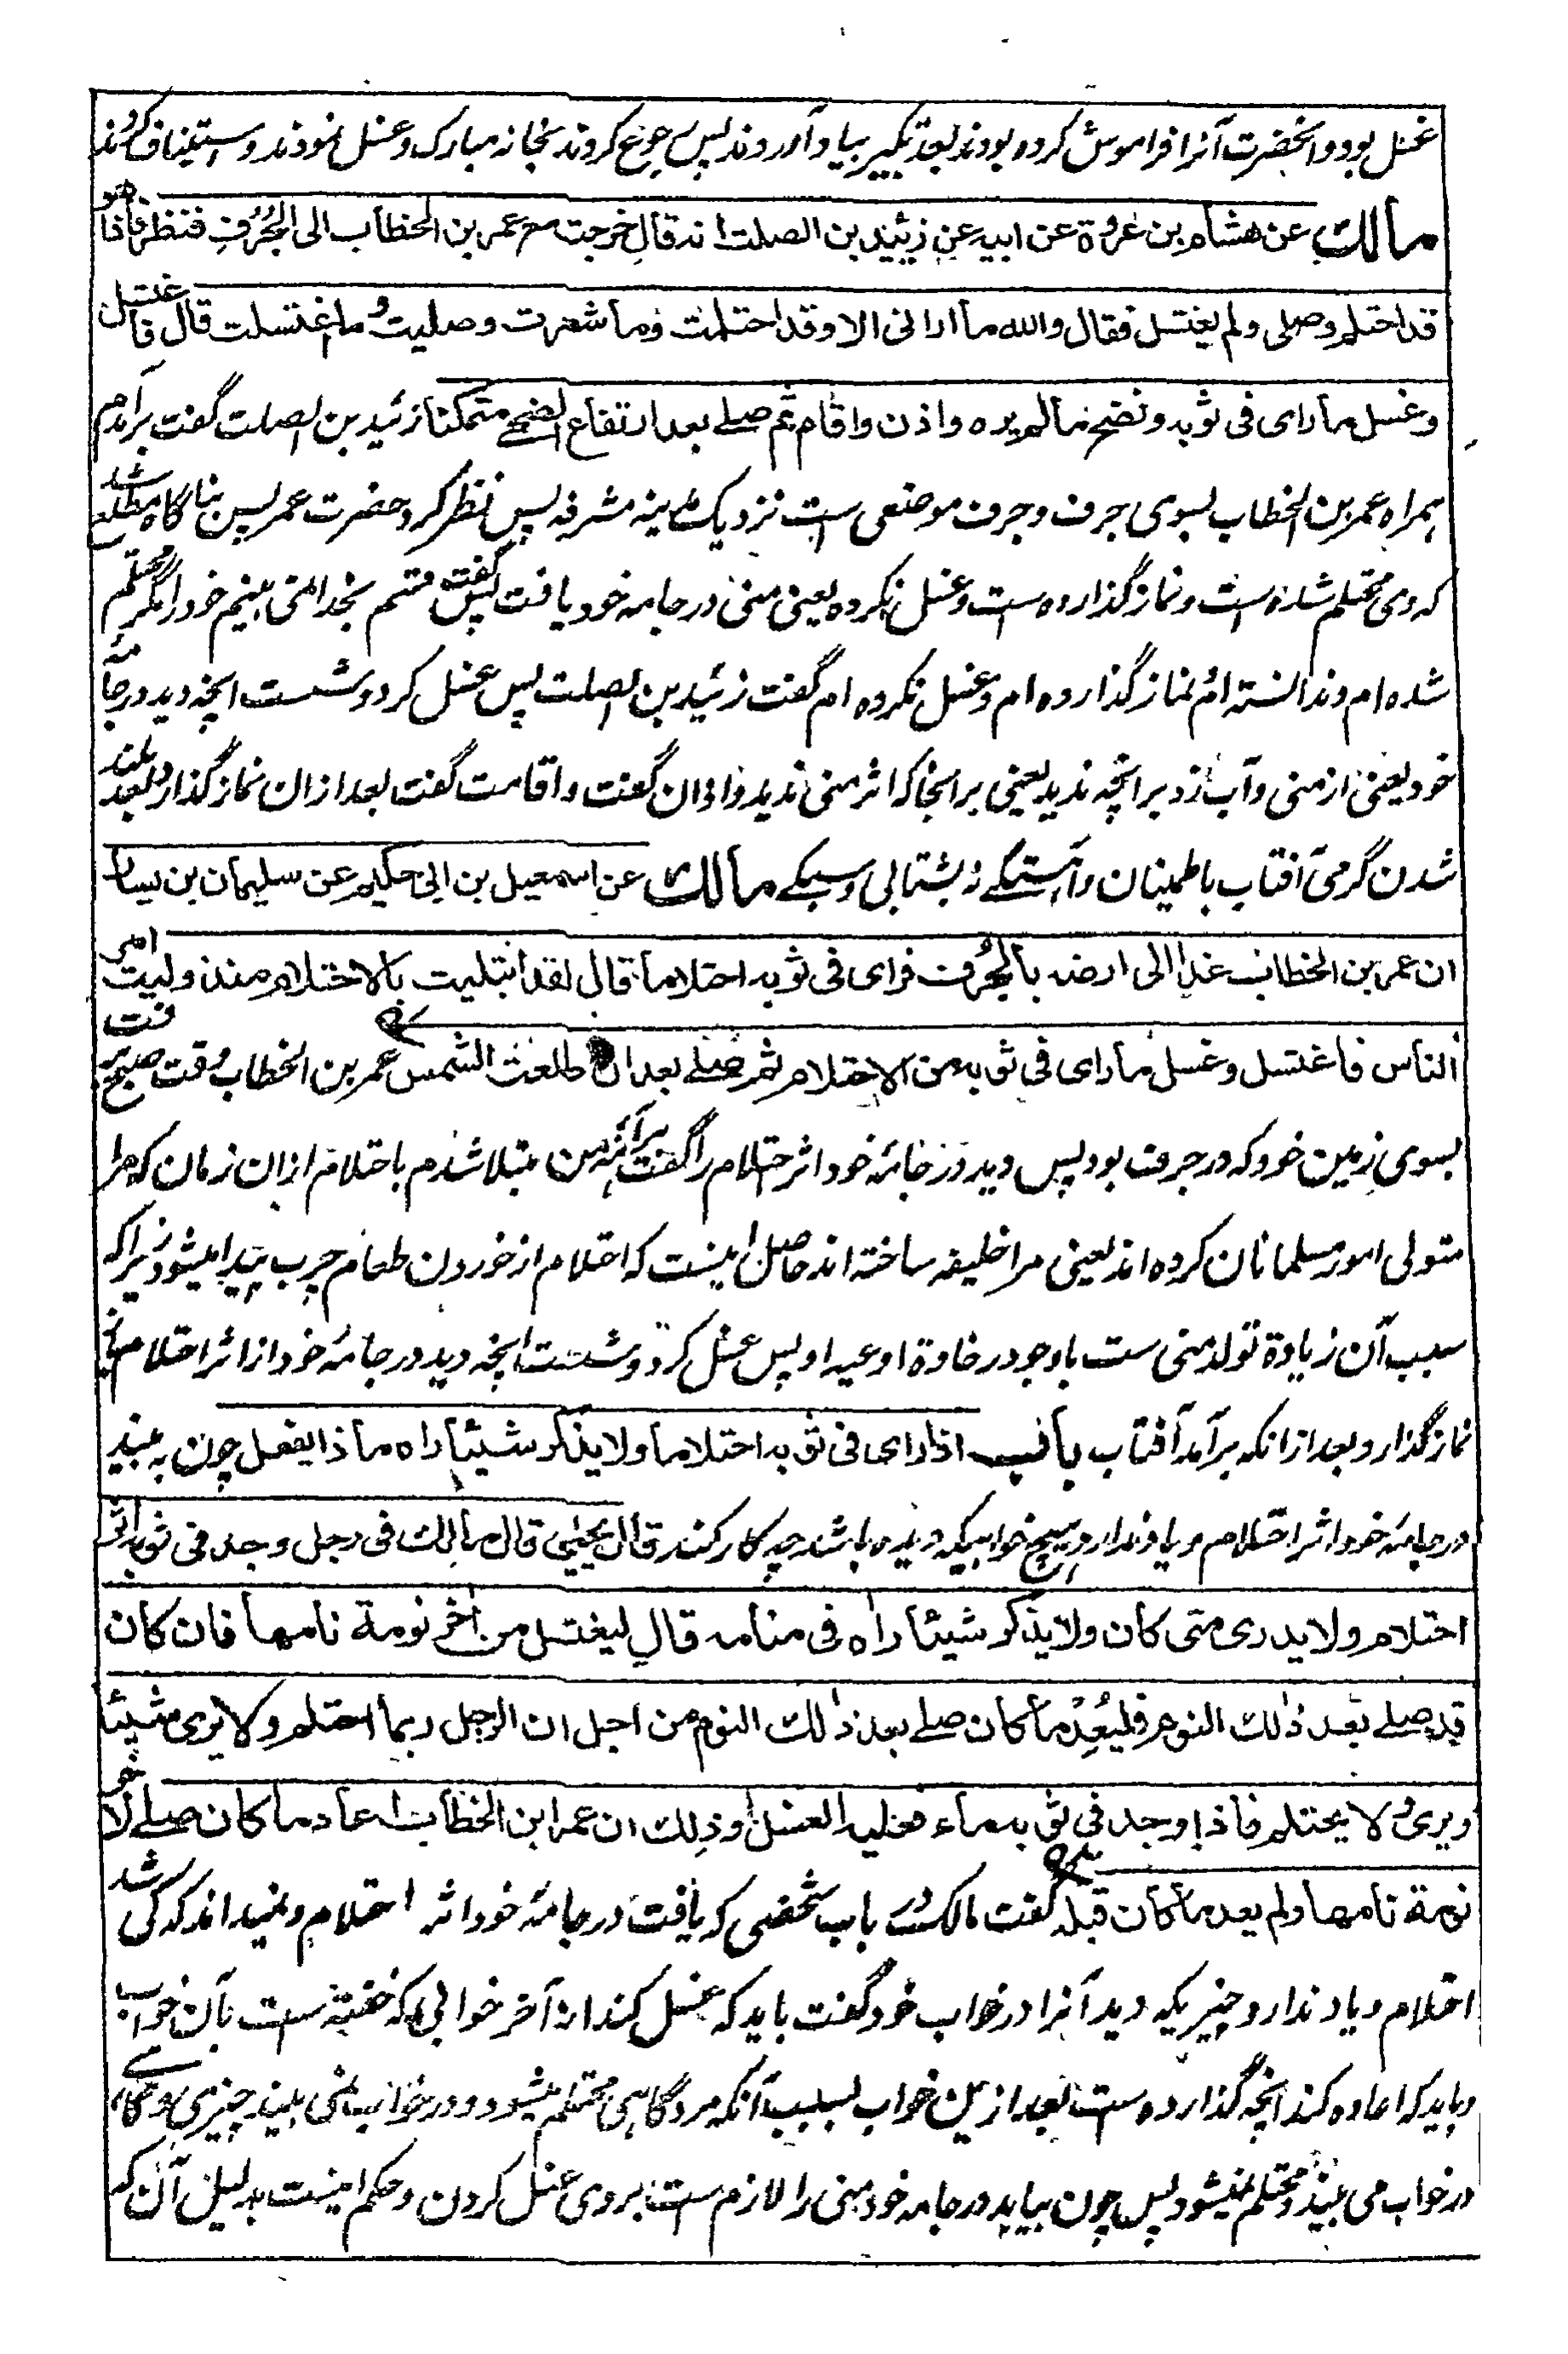 غسل بود و آنحضرت آنرا فراموش کرده بودند بعد تکبیر بیاد آوردند پس رجوع کردند بخانه مبارک و غسل نمودند و استیناف کردند
مالك عن هشام بن عروة عن ابيه عن زييد بن الصلت انه قال خرجت مع عمر بن الخطاب الى الجُرُف فنظر فاذا هو
قد احتلم وصلى ولم يغتسل فقال والله ما ارانى الا وقد احتلمت وما شعرت وصليت وما اغتسلت قال فاغتسل
وغسل ما راى فى ثوبه ونضح ما لم يره واذن واقام ثم صلے بعد ارتفاع الضحے متمكنا زئید بن الصلت گفت برآمدم
همراه عمر بن الخطاب بسوی جرف و جرف موضعی ست نزدیک مدینه مشرفه پس نظر کرد حضرت عمر پس بناگاه مطلع شد
که وی محتلم شده است و نماز گذارده ست و غسل نکرده یعنی منی در جامه خود یافت پس گفت قسم بخدا نمی بینم خود را مگر محتلم
شده ام و ندانسته ام و نماز گذارده ام و غسل نکرده ام گفت زئید بن الصلت پس غسل کرد و شست آنچه دید در جامهٔ
خود یعنی از منی و آب زد بر آنچه ندید یعنی بر آنجا که اثر منی ندید و اذان گفت و اقامت گفت بعد ازان نماز گذارد بعد بلند
شدن گرمی آفتاب باطمینان و آهستگے نه بشتابی و سبکے مالك عن اسمعيل بن ابى حكيم عن سليمان بن يسار
ان عمر بن الخطاب غدا الى ارضه بالجُرُف فراى فى ثوبه احتلاما فقال لقد ابتليت بالاحتلام منذ وليت امر
الناس فاغتسل وغسل ما راى فى ثوبه من الاحتلام ثم صلے بعد ان طلعت الشمس عمر بن الخطاب رفت وقت صبح
بسوی زمین خود که در جرف بود پس دید در جامهٔ خود اثر احتلام را گفت هر آئنه من مبتلا شدم باحتلام ازان زمان که مرا
متولی امور مسلمانان کرده اند یعنی مرا خلیفه ساخته اند حاصل اینست که احتلام از خوردن طعام چرب پیدا میشود زیرا که
سبب آن زیادة تولد منی ست باوجود رخاوة اوعیه او پس غسل کرد و شست آنچه دید در جامهٔ خود از اثر احتلام
نماز گذارد بعد ازانکه برآمد آفتاب باب اذا راى فى ثوبه احتلاما ولا يذكر شيئا راه ماذا يفعل چون به بیند
در جامهٔ خود اثر احتلام و یاد ندارد هیچ خوابیکه دیده باشد چه کار کند قال يحيى قال مالك فى رجل وجد فى ثوبه اثر
احتلام ولا يدرى متى كان ولا يذكر شيئا راه فى منامه قال ليغتسل من اخر نومة نامها فان كان
قد صلے بعد ذلك النوم فليُعِدْ ما كان صلے بعد ذلك النوم من اجل ان الرجل ربما احتلم ولا يرى شيئا
ويرى ولا يحتلم فاذا وجد فى ثوبه ماء فعليه الغسل وذلك ان عمر ابن الخطاب اعاد ما كان صلے لاخر
نومة نامها ولم يعد ما كان قبله گفت مالک در باب شخصی که یافت در جامهٔ خود اثر احتلام و نمیداند که کی شد
احتلام و یاد ندارد چیزیکه دید آنرا در خواب خود گفت باید که غسل کند از آخر خوابی که خفته ست بآن خواب
و باید که اعاده کند آنچه گذارده ست بعد ازین خواب بسبب آنکه مرد گاهی محتلم میشود و در خواب نمی بیند چیزی و گاهے
در خواب می بیند و محتلم نمیشود پس چون بیابد در جامه خود منی را لازم ست بر وی غسل کردن و حکم اینست بدلیل آن که